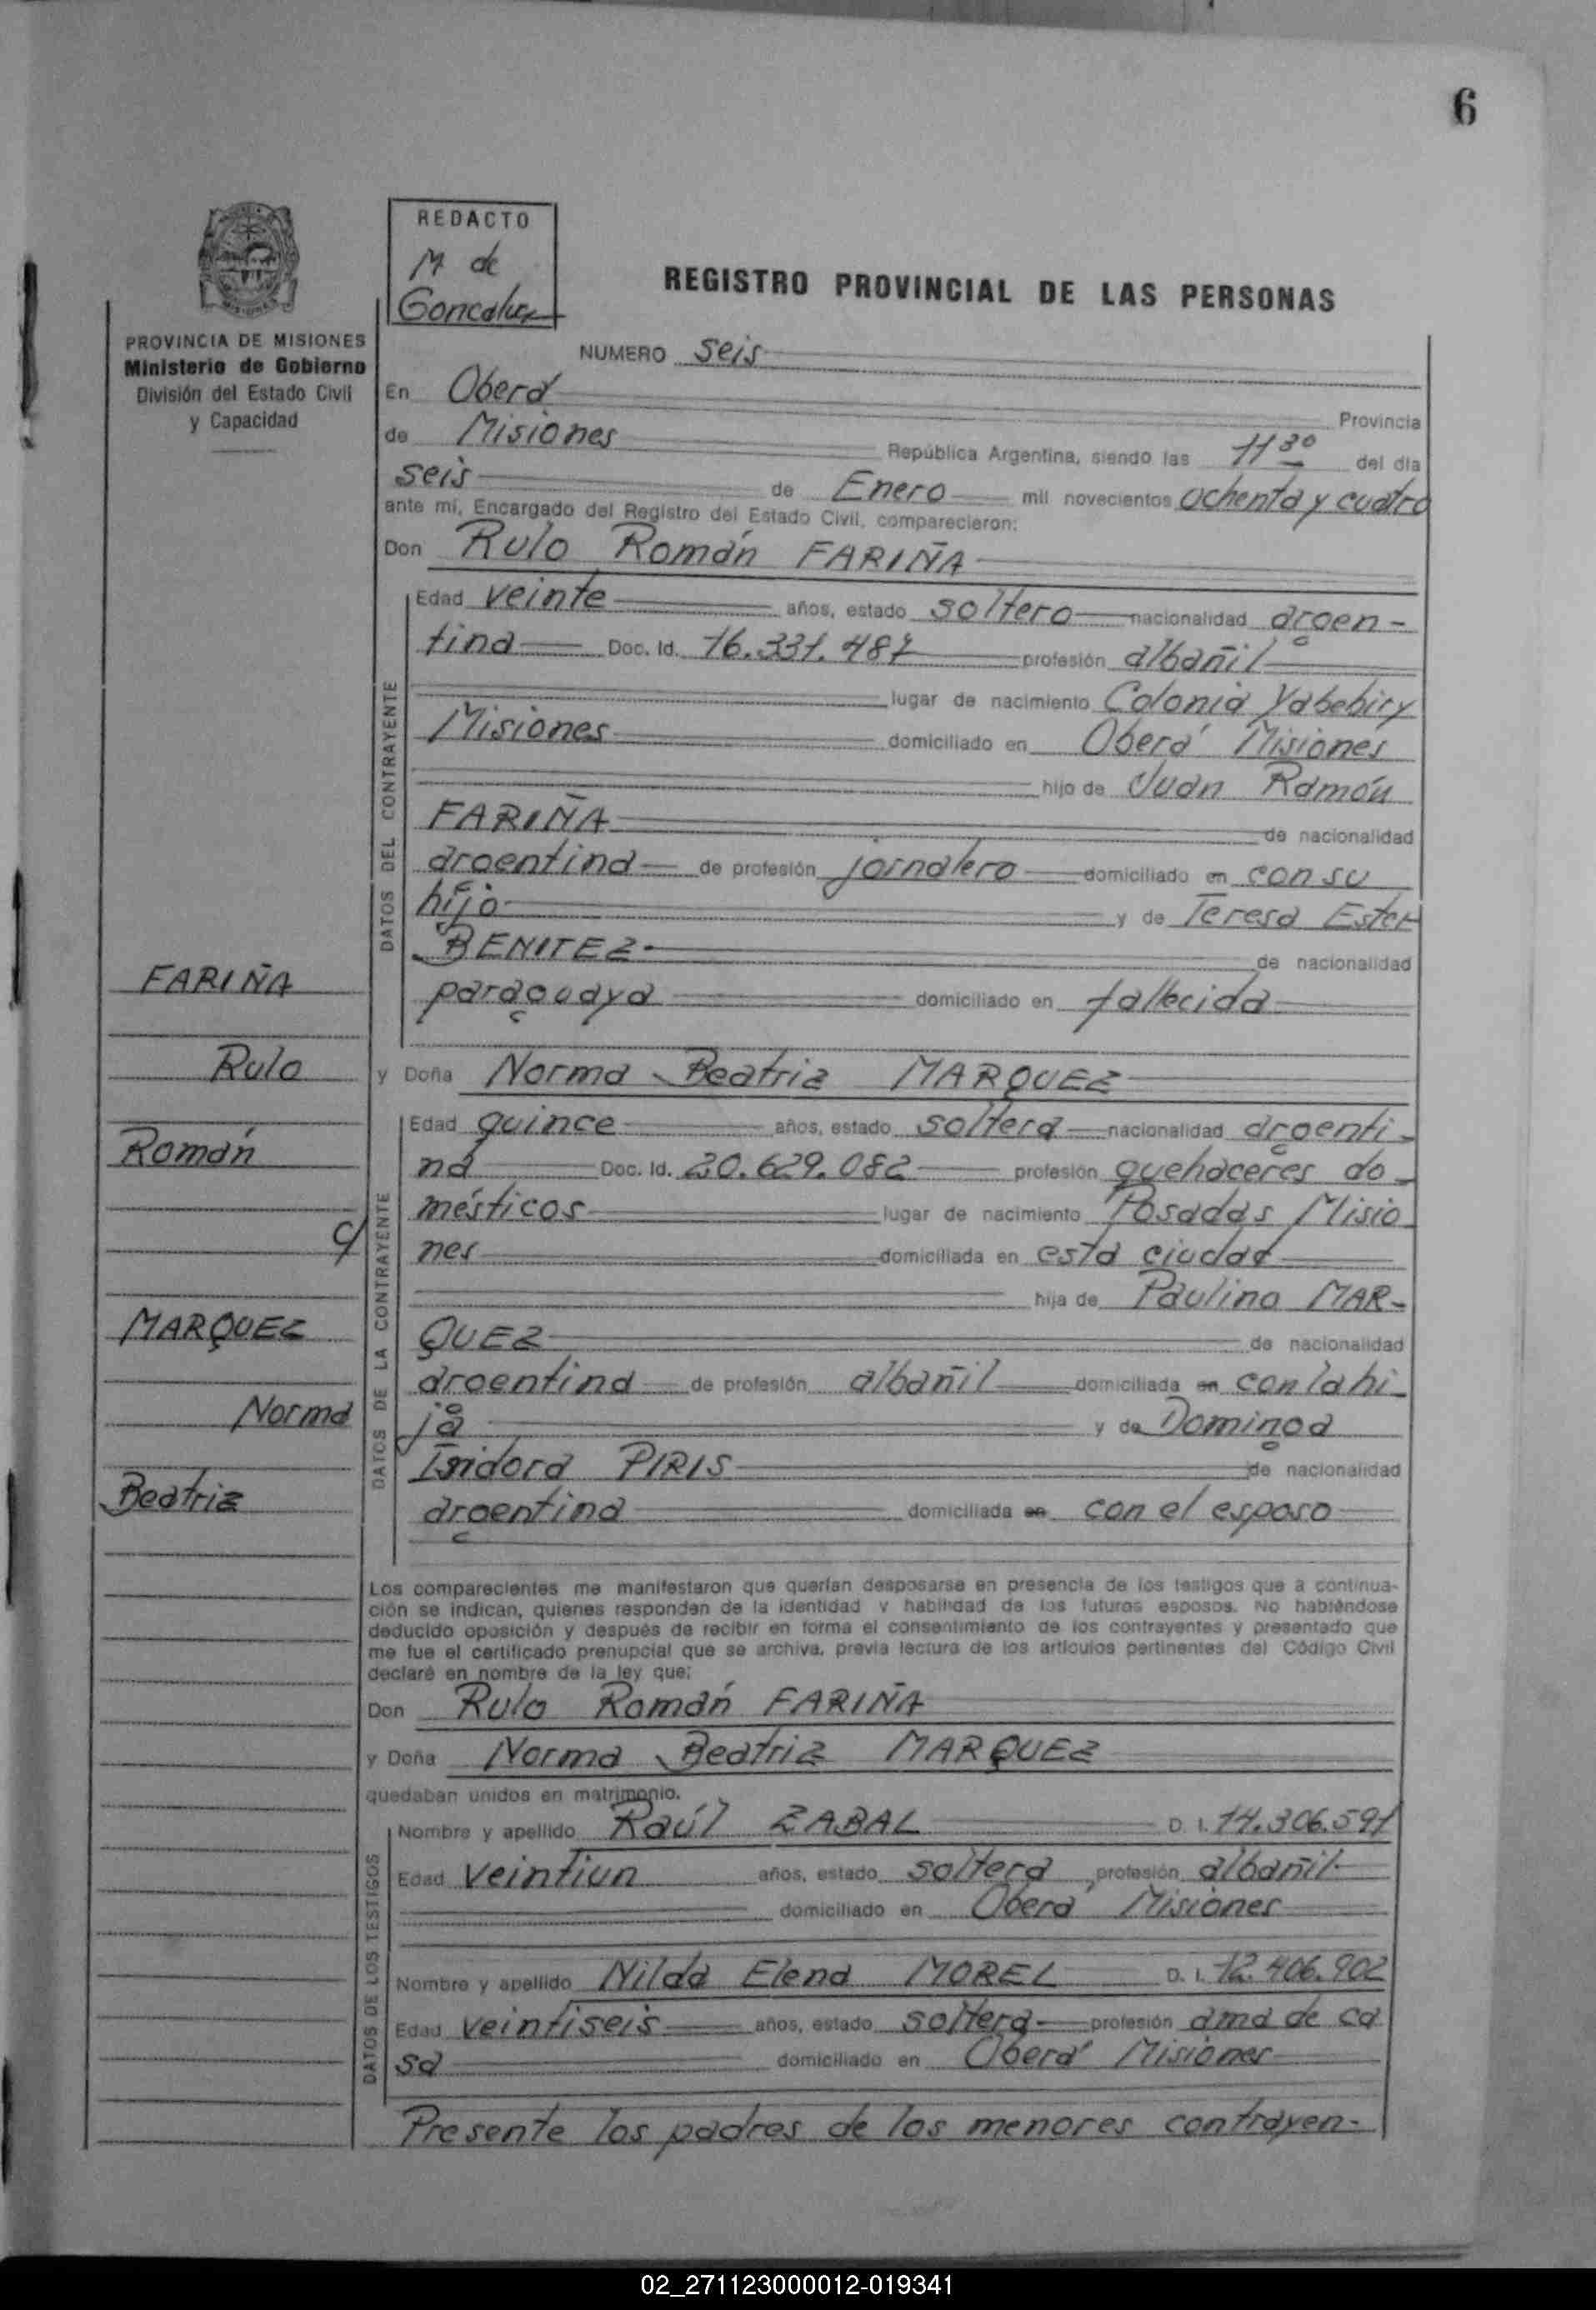 6
REDACTO
M de
Goncalvez
REGISTRO PROVINCIAL DE LAS PERSONAS
PROVINCIA DE MISIONES
Ministerio de Gobierno
División del Estado Civil
y Capacidad
NUMERO seis
En Oberá Provincia
de Misiones República Argentina, siendo las 11 30 del día
seis de Enero mil novecientos ochenta y cuatro
ante mí, Encargado del Registro del Estado Civil, comparecieron:
Don Rulo Román FARIÑA
DATOS DEL CONTRAYENTE
Edad veinte años, estado soltero nacionalidad argen-
tina Doc. Id. 16.331.487 profesión albañil
lugar de nacimiento Colonia Yabebiry
Misiones domiciliado en Oberá Misiones
hijo de Juan Ramón
FARIÑA de nacionalidad
argentina de profesión jornalero domiciliado en con su
hijo y de Teresa Ester
BENITEZ de nacionalidad
paraguaya domiciliado en fallecida
y Doña Norma Beatriz MARQUEZ
DATOS DE LA CONTRAYENTE
Edad quince años, estado soltera nacionalidad argenti-
na Doc. Id. 20.629.082 profesión quehaceres do-
mésticos lugar de nacimiento Posadas Misio
nes domiciliada en esta ciudad
hija de Paulino MAR-
QUEZ de nacionalidad
argentina de profesión albañil domiciliada en con la hi-
ja y de Dominga
Isidora PIRIS de nacionalidad
argentina domiciliada en con el esposo
FARIÑA
Rulo
Román
c/
MARQUEZ
Norma
Beatriz
Los comparecientes me manifestaron que querían desposarse en presencia de los testigos que a continua-
ción se indican, quienes responden de la identidad y habilidad de los futuros esposos. No habiéndose
deducido oposición y después de recibir en forma el consentimiento de los contrayentes y presentado que
me fue el certificado prenupcial que se archiva, previa lectura de los artículos pertinentes del Código Civil
declaré en nombre de la ley que:
Don Rulo Román FARIÑA
y Doña Norma Beatriz MARQUEZ
quedaban unidos en matrimonio.
DATOS DE LOS TESTIGOS
Nombre y apellido Raúl ZABAL D. I. 14.306.591
Edad veintiun años, estado soltera profesión albañil
domiciliado en Oberá Misiones
Nombre y apellido Nilda Elena MOREL D. I. 12.406.902
Edad veintiseis años, estado soltera profesión ama de ca
sa domiciliado en Oberá Misiones
Presente los padres de los menores contrayen-
02_271123000012-019341